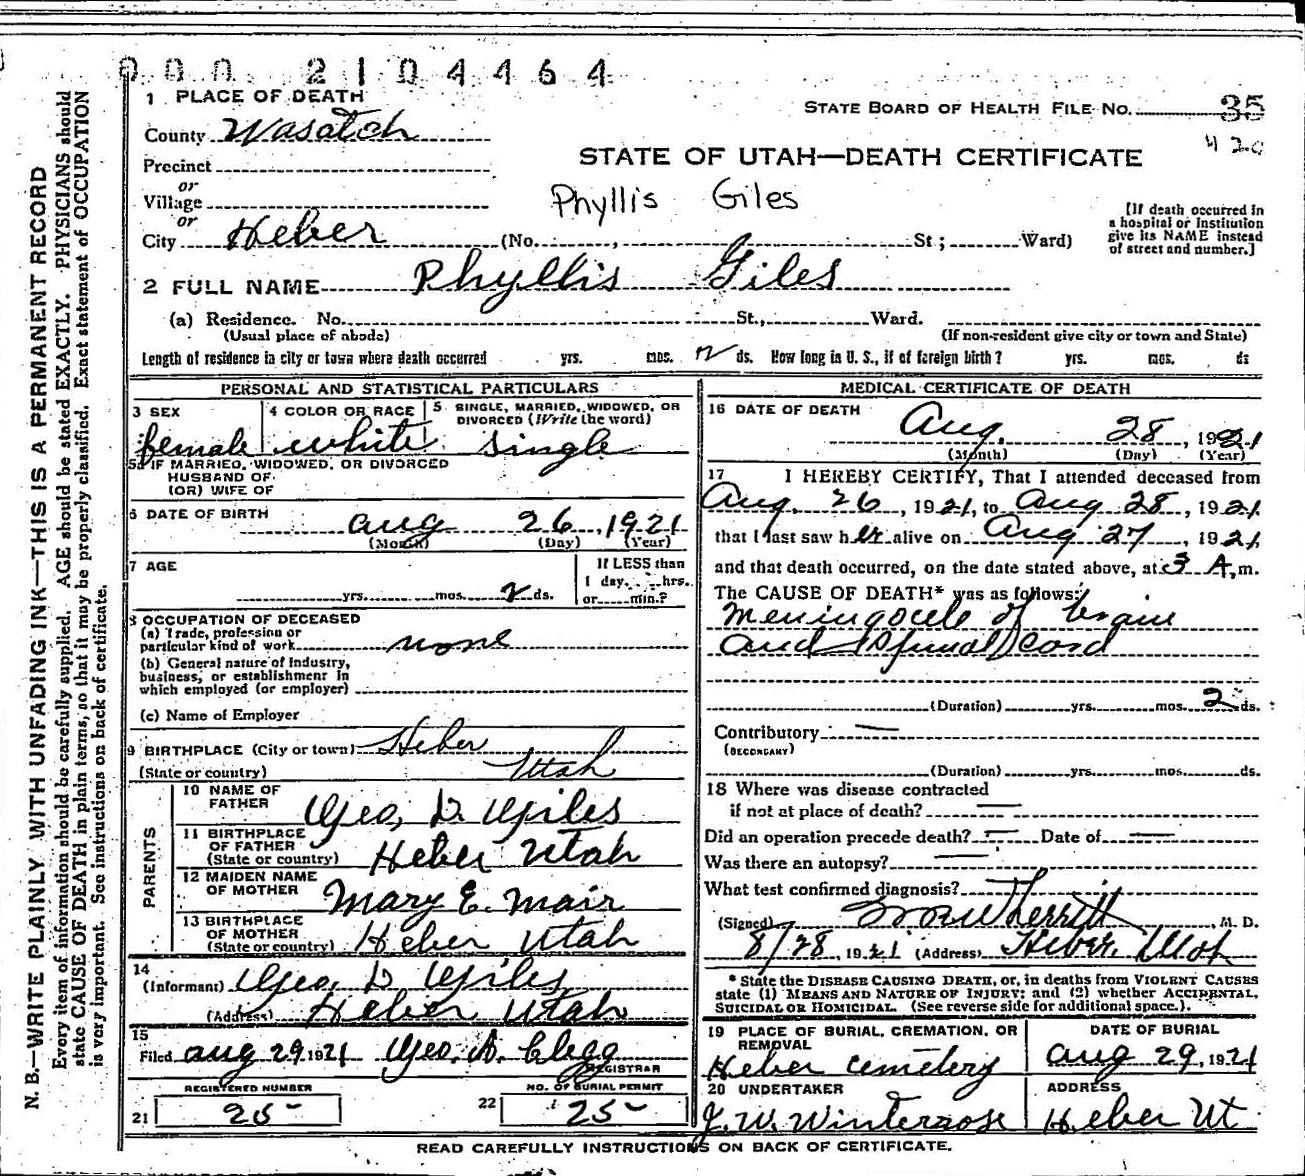 000 2104464
1 PLACE OF DEATH
STATE BOARD OF HEALTH FILE NO. 35
County Wasatch
420
STATE OF UTAH—DEATH CERTIFICATE
Precinct
or
Village
Phyllis Giles
or
City Heber (No. , St; Ward)
[If death occurred in a hospital or institution give its NAME instead of street and number.]
2 FULL NAME Phyllis Giles
(a) Residence. No. St., Ward.
(Usual place of abode) (If non-resident give city or town and State)
Length of residence in city or town where death occurred yrs. mos. ds. How long in U. S., if of foreign birth? yrs. mos. ds
PERSONAL AND STATISTICAL PARTICULARS
3 SEX
female
4 COLOR OR RACE
white
5 SINGLE, MARRIED, WIDOWED, OR DIVORCED (Write the word)
single
5a IF MARRIED, WIDOWED, OR DIVORCED
HUSBAND OF
(OR) WIFE OF
6 DATE OF BIRTH aug 26, 1921
(Month) (Day) (Year)
7 AGE
yrs. mos. 2 ds.
If LESS than
1 day, hrs.
or min.?
8 OCCUPATION OF DECEASED
(a) Trade, profession or
particular kind of work none
(b) General nature of industry,
business, or establishment in
which employed (or employer)
(c) Name of Employer
9 BIRTHPLACE (City or town) Heber
(State or country) Utah
PARENTS
10 NAME OF FATHER Geo, D. Giles
11 BIRTHPLACE OF FATHER
(State or country) Heber Utah
12 MAIDEN NAME OF MOTHER Mary E. Mair
13 BIRTHPLACE OF MOTHER
(State or country) Heber Utah
14
(Informant) Geo, D Giles
(Address) Heber Utah
15
Filed aug 29, 1921 Geo. A. Clegg
REGISTRAR
REGISTERED NUMBER
21 25-
NO. OF BURIAL PERMIT
22 25-
MEDICAL CERTIFICATE OF DEATH
16 DATE OF DEATH
Aug. 28, 1921
(Month) (Day) (Year)
17 I HEREBY CERTIFY, That I attended deceased from
Aug. 26, 1921, to Aug 28, 1921
that I last saw her alive on Aug 27, 1921,
and that death occurred, on the date stated above, at 3 A, m.
The CAUSE OF DEATH* was as follows:
Meningocele of brain
and Spinal Cord
(Duration) yrs. mos. 2 ds.
Contributory —
(SECONDARY)
(Duration) yrs. mos. ds.
18 Where was disease contracted
if not at place of death? —
Did an operation precede death? — Date of —
Was there an autopsy? —
What test confirmed diagnosis? —
(Signed) Wherritt, M. D.
8/28, 1921 (Address) Heber, Utah
* State the DISEASE CAUSING DEATH, or, in deaths from VIOLENT CAUSES
state (1) MEANS AND NATURE OF INJURY; and (2) whether ACCIDENTAL,
SUICIDAL OR HOMICIDAL. (See reverse side for additional space.)
19 PLACE OF BURIAL, CREMATION, OR REMOVAL
Heber Cemetery
DATE OF BURIAL
aug 29, 1921
20 UNDERTAKER
J. W. Winterrose
ADDRESS
Heber Ut
READ CAREFULLY INSTRUCTIONS ON BACK OF CERTIFICATE.
N. B.—WRITE PLAINLY WITH UNFADING INK—THIS IS A PERMANENT RECORD
Every item of information should be carefully supplied. AGE should be stated EXACTLY. PHYSICIANS should
state CAUSE OF DEATH in plain terms, so that it may be properly classified. Exact statement of OCCUPATION
is very important. See instructions on back of certificate.